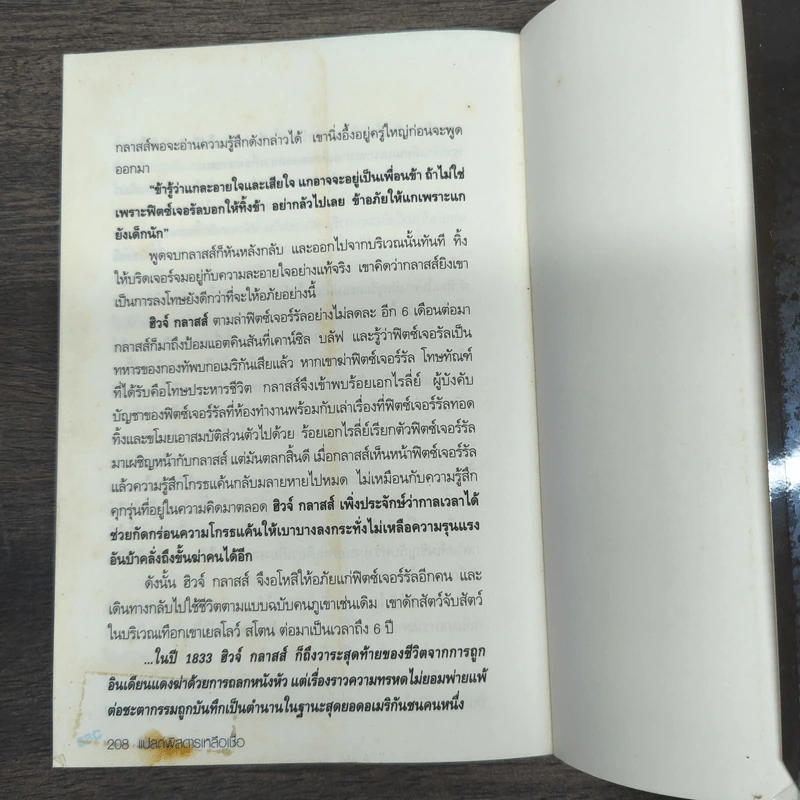 กลาสส์พอจะอ่านความรู้สึกดังกล่าวได้ เขานิ่งอึ้งอยู่ครู่ใหญ่ก่อนจะพูด
ออกมา
"ข้ารู้ว่าแกละอายใจและเสียใจ แกอาจจะอยู่เป็นเพื่อนข้า ถ้าไม่ใช่
เพราะฟิตซ์เจอรัลบอกให้ทิ้งข้า อย่ากลัวไปเลย ข้าอภัยให้แกเพราะแก
ยังเด็กนัก"
พูดจบกลาสส์ก็หันหลังกลับ และออกไปจากบริเวณนั้นทันที ทิ้ง
ให้บริดเจอร์จมอยู่กับความละอายใจอย่างแท้จริง เขาคิดว่ากลาสส์ยิงเขา
เป็นการลงโทษยังดีกว่าที่จะให้อภัยอย่างนี้
ฮิวจ์ กลาสส์ ตามล่าฟิตซ์เจอร์รัลอย่างไม่ลดละ อีก 6 เดือนต่อมา
กลาสส์ก็มาถึงป้อมแอตคินสันที่เคาน์ซิล บลัฟ และรู้ว่าฟิตซ์เจอรัลเป็น
ทหารของกองทัพบกอเมริกันเสียแล้ว หากเขาฆ่าฟิตซ์เจอร์รัล โทษทัณฑ์
ที่ได้รับคือโทษประหารชีวิต กลาสส์จึงเข้าพบร้อยเอกไรลี่ย์ ผู้บังคับ
บัญชาของฟิตซ์เจอร์รัลที่ห้องทำงานพร้อมกับเล่าเรื่องที่ฟิตซ์เจอร์รัลทอด
ทิ้งและขโมยเอาสมบัติส่วนตัวไปด้วย ร้อยเอกไรลี่ย์เรียกตัวฟิตซ์เจอร์รัล
มาเผชิญหน้ากับกลาสส์ แต่มันตลกสิ้นดี เมื่อกลาสส์เห็นหน้าฟิตซ์เจอร์รัล
แล้วความรู้สึกโกรธแค้นกลับมลายหายไปหมด ไม่เหมือนกับความรู้สึก
คุกรุ่นที่อยู่ในความคิดมาตลอด ฮิวจ์ กลาสส์ เพิ่งประจักษ์ว่ากาลเวลาได้
ช่วยกัดกร่อนความโกรธแค้นให้เบาบางลงกระทั่งไม่เหลือความรุนแรง
อันบ้าคลั่งถึงขั้นฆ่าคนได้อีก
ดังนั้น ฮิวจ์ กลาสส์ จึงอโหสิให้อภัยแก่ฟิตซ์เจอร์รัลอีกคน และ
เดินทางกลับไปใช้ชีวิตตามแบบฉบับคนภูเขาเช่นเดิม เขาดักสัตว์จับสัตว์
ในบริเวณเทือกเขาเยลโลว์ สโตน ต่อมาเป็นเวลาถึง 6 ปี
...ในปี 1833 ฮิวจ์ กลาสส์ ก็ถึงวาระสุดท้ายของชีวิตจากการถูก
อินเดียนแดงฆ่าด้วยการถลกหนังหัว แต่เรื่องราวความทรหดไม่ยอมพ่ายแพ้
ต่อชะตากรรมถูกบันทึกเป็นตำนานในฐานะสุดยอดอเมริกันชนคนหนึ่ง
208 แปลกพิสดารเหลือเชื่อ